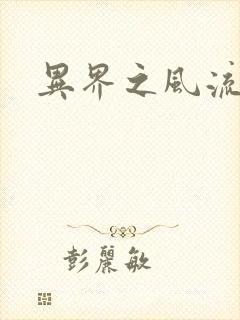 異界之風流
彭麗敏